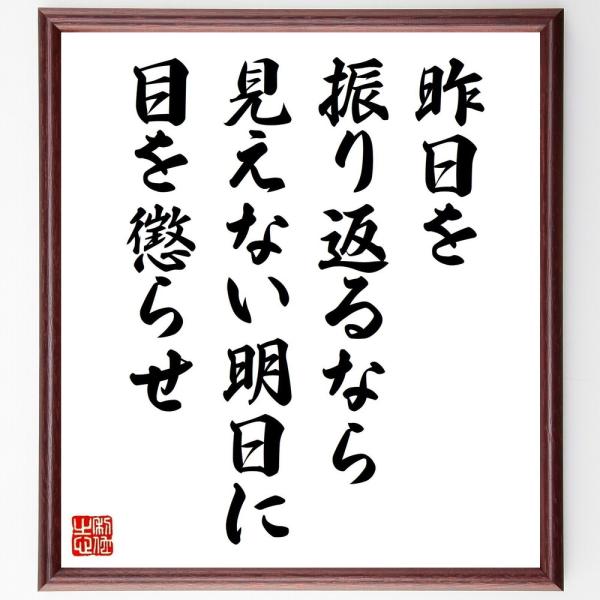 昨日を
振り返るなら
見えない明日に
目を懲らせ